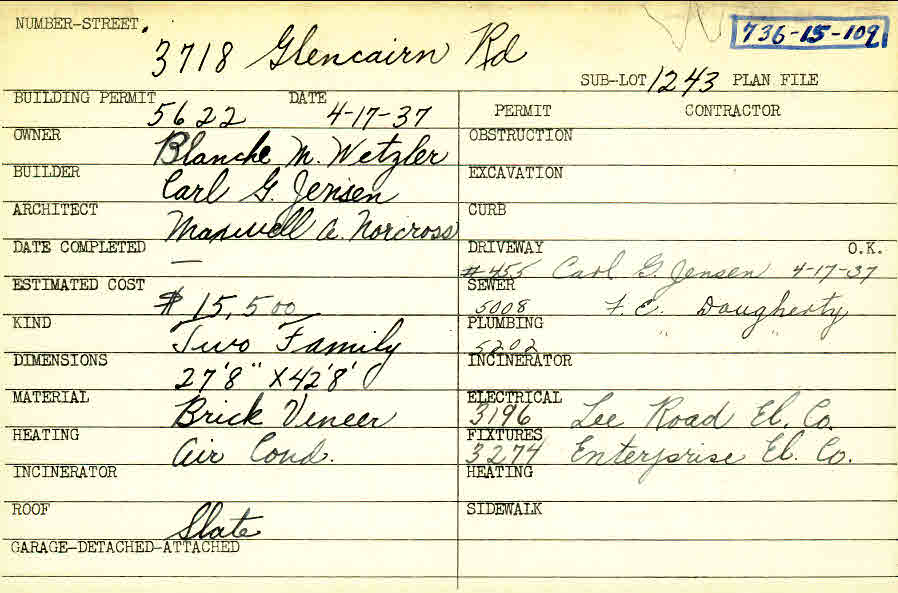 NUMBER-STREET.
3718 Glencairn Rd
736-15-109
SUB-LOT 1243 PLAN FILE
BUILDING PERMIT 5622 DATE 4-17-37
OWNER Blanche M. Wetzler
BUILDER Carl G. Jensen
ARCHITECT Maxwell A. Norcross
DATE COMPLETED —
ESTIMATED COST $15,500
KIND Two Family
DIMENSIONS 27'8" X 42'8'
MATERIAL Brick Veneer
HEATING Air Cond.
INCINERATOR
ROOF Slate
GARAGE-DETACHED-ATTACHED
PERMIT CONTRACTOR
OBSTRUCTION
EXCAVATION
CURB
DRIVEWAY O.K.
#455 Carl G. Jensen 4-17-37
SEWER
5008 F. C. Daugherty
PLUMBING
5202 " "
INCINERATOR
ELECTRICAL
3196 Lee Road El. Co.
FIXTURES
3274 Enterprise El. Co.
HEATING
SIDEWALK